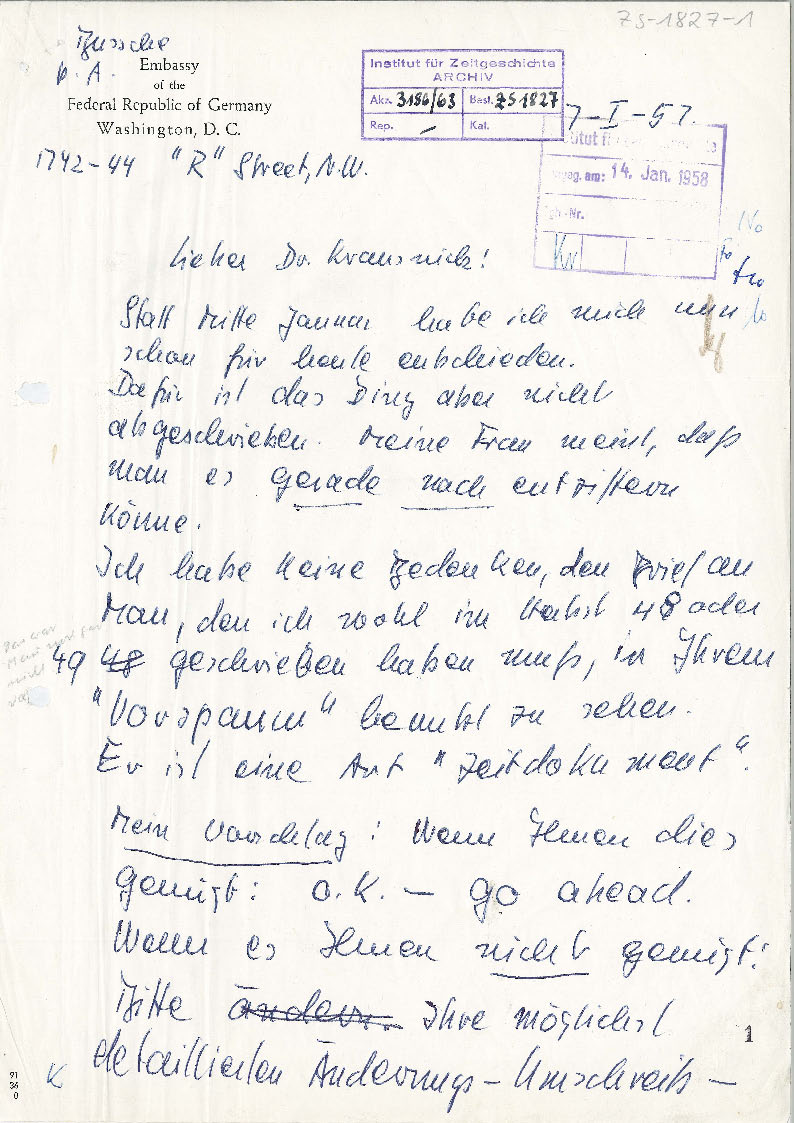 ZS-1827-1
Bussche
p. A.
Embassy
of the
Federal Republic of Germany
Washington, D. C.
1742-44 "R" Street, N.W.
Institut für Zeitgeschichte
ARCHIV
Akz. 3186/63 Best. ZS 1827
Rep. — Kal.
7-I-57.
14. Jan. 1958
Kr
Lieber Dr. Krausnick!
Statt Mitte Januar habe ich mich nun
schon für heute entschieden.
Dafür ist das Ding aber nicht
abgeschrieben. Meine Frau meint, daß
man es gerade noch entziffern
könne.
Ich habe keine Bedenken, den Brief an
Man, den ich wohl im Herbst 48 oder
49 48 geschrieben haben muß, in Ihrem
"Vorspann" benutzt zu sehen.
Er ist eine Art "Zeitdokument".
Mein Vorschlag: Wenn Ihnen dies
genügt: o.K. — go ahead.
Wenn es Ihnen nicht genügt:
Bitte ändern. Ihre möglichst
detaillierten Änderungs-Umschreib-
1
91
36
0
K